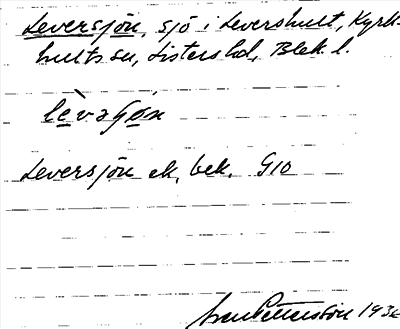 Leversjön, sjö i Levershult, Kyrk-
hults sn, Listers hd, Blek. l.
Leversjön ek. bek. G10
Pettersson 193